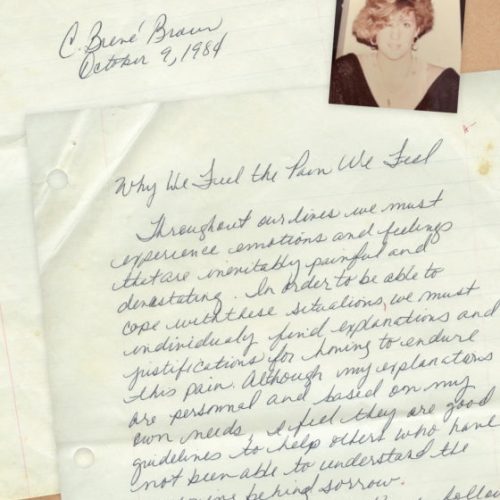 C. Brené Brown
October 9, 1984
A-
Why We Feel the Pain We Feel
Throughout our lives we must
experience emotions and feelings
that are inevitably painful and
devastating. In order to be able to
cope with these situations, we must
individualy find explanations and
justifications for having to endure
this pain. Although my explanations
are personnal and based on my
own needs I feel they are good
guidelines to help others who have
not been able to understand the
behind sorrow.